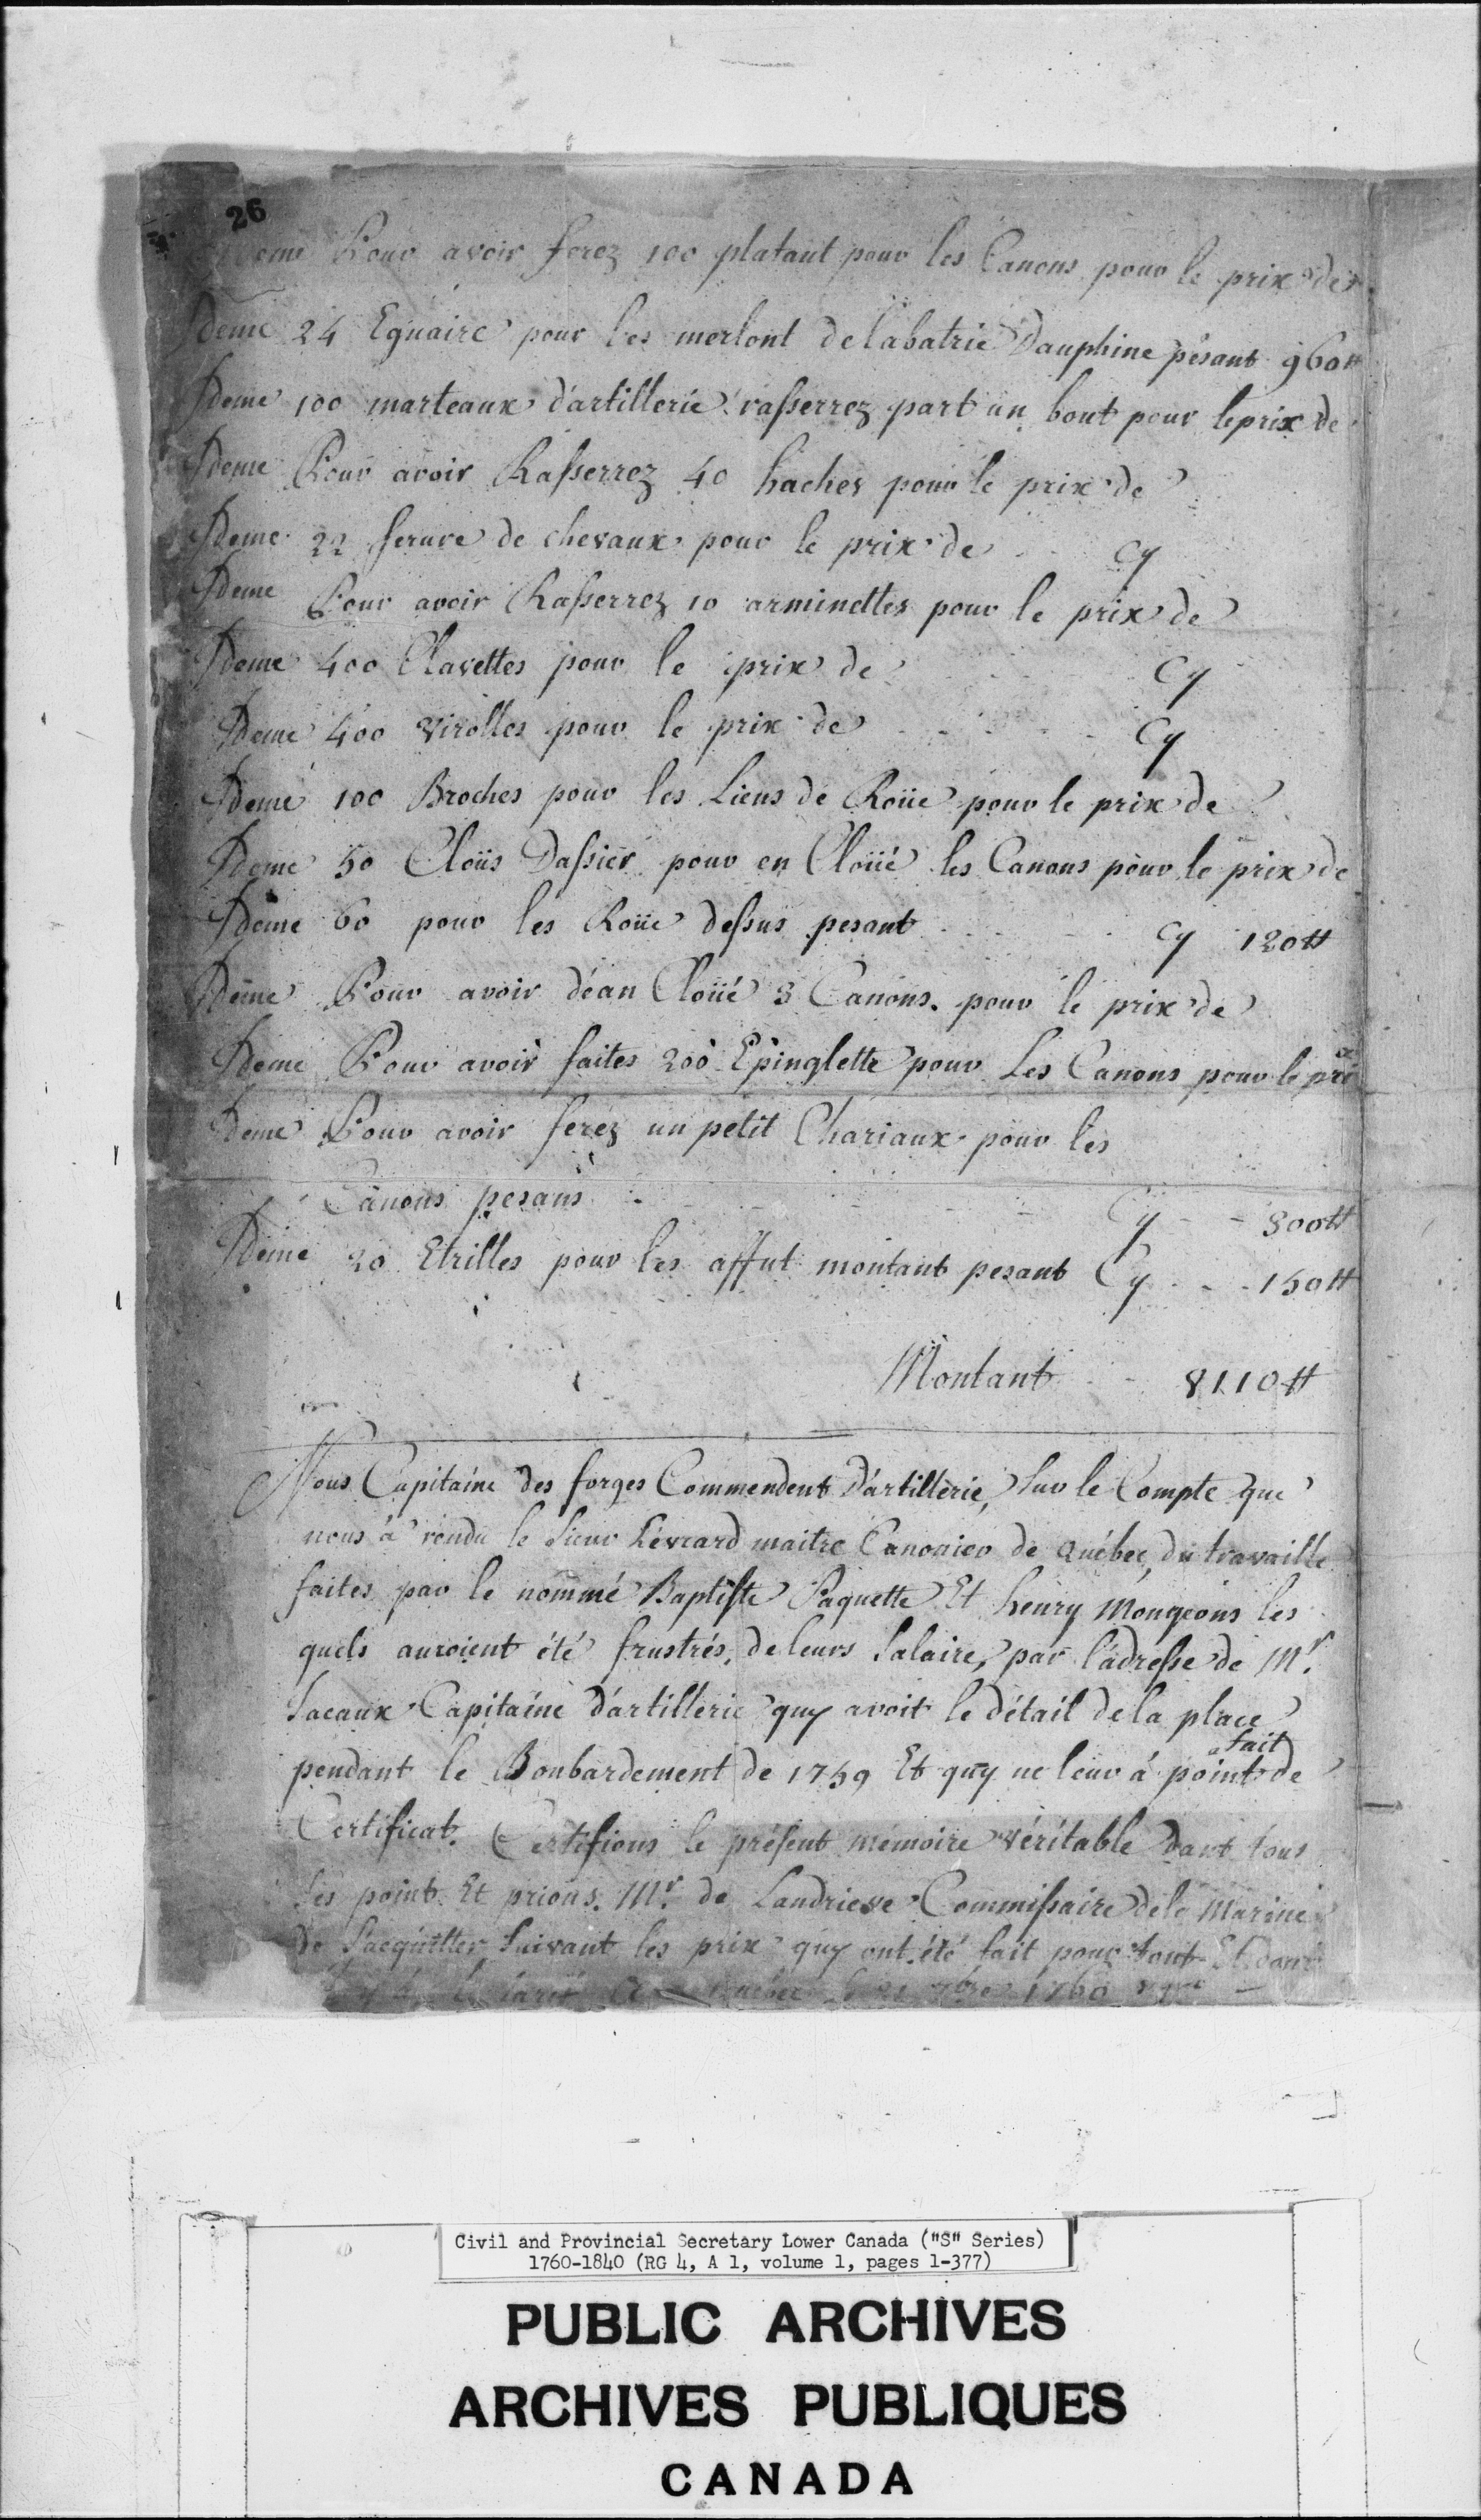 26
Ideme Pour avoir ferez 100 platant pour les Canons pour le prix de
Ideme 24 Equaire pour les merlont delabatrie Dauphine pesant 960#
Ideme 100 marteaux d'artillerie rasserrez part un bout pour leprix de
Ideme Pour avoir Rasserrez 40 haches pour le prix de
Ideme 22 ferure de chevaux pour le prix de Cy
Ideme Pour avoir Rasserrez 10 arminettes pour le prix de
Ideme 400 Clavettes pour le prix de Cy
Ideme 400 Virolles pour le prix de Cy
Ideme 100 Broches pour les Liens de Roüe pour le prix de
Ideme 50 Cloüs Dassier pour en Cloüé les Canons pour le prix de
Ideme 60 pour les Roüe dessus pesant Cy 120#
Ideme Pour avoir déan Cloüé 3 Canons. pour le prix de
Ideme Pour avoir faites 200 Epinglette pour Les Canons pour le prix
Ideme Pour avoir ferez un petit Chariaux pour les
Canons pesans Cy 300#
Ideme 20 Etrilles pour les affut montant pesant Cy 150#
Montant 8110#
Nous Capitaine des forges Commendent D'artillerie, Sur le Compte que
nous à rendu le Sieur Lévrard maitre Canonier de Québec, du travaille
faites par le nommé Baptiste Paquette Et henry Mongeons les
quels auroient été frustrés, de leurs Salaire, par l'adresse de Mr.
Jacaux Capitaine d'artillerie quy avoit le détail dela place
pendant le Bonbardement de 1759 Et quy ne leur à point fait de
Certificat. Certifions le présent mémoire véritable dant tous
Ses point Et prions. Mr. de Landrieve Commissaire dela Marine
de Sacquitter Suivant les prix quy ont été fait pour tout Et dont
tarif A Québec le 21 7bre 1760
Civil and Provincial Secretary Lower Canada ("S" Series)
1760-1840 (RG 4, A 1, volume 1, pages 1-377)
PUBLIC ARCHIVES
ARCHIVES PUBLIQUES
CANADA